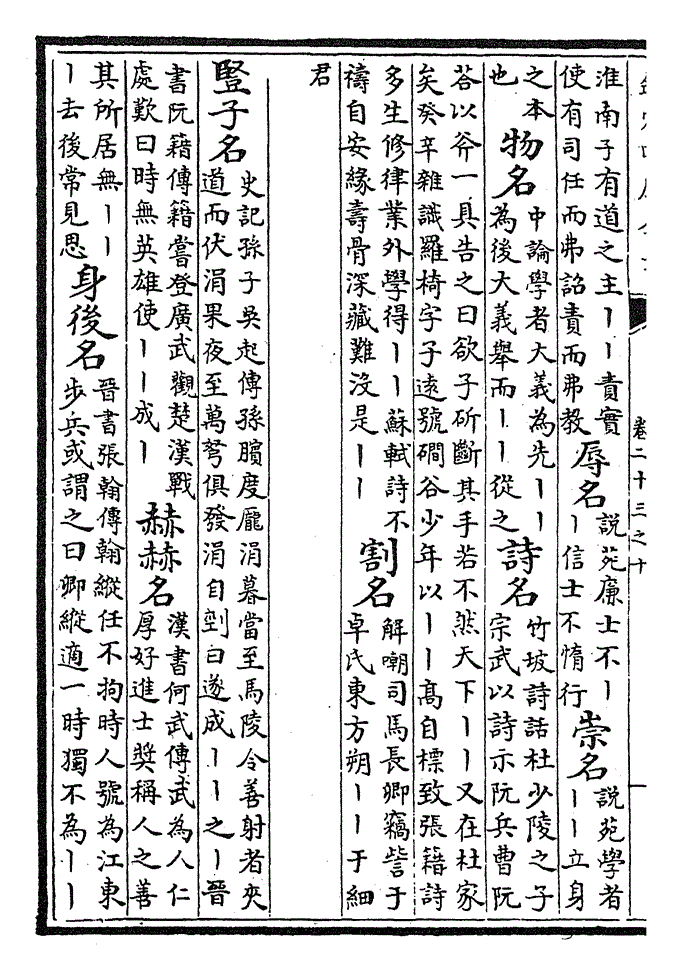 卷二十三之十
淮南子有道之主〡〡責實
使有司任而弗詔責而弗教
辱名
說苑廉士不〡
〡信士不惰行
崇名
說苑學者
〡〡立身
之本
也
物名
中論學者大義為先〡〡
為後大義舉而〡〡從之
詩名
竹坡詩話杜少陵之子
宗武以詩示阮兵曹阮
荅以斧一具告之曰欲子斫斷其手若不然天下〡〡又在杜家
矣癸辛雜識羅椅字子遠號磵谷少年以〡〡高自標致張籍詩
多生修律業外學得〡〡蘇軾詩不
禱自安緣壽骨深藏難沒是〡〡
割名
解嘲司馬長卿竊訾于
卓氏東方朔〡〡于細
君
豎子名
史記孫子吳起傳孫臏度龐涓暮當至馬陵令善射者夾
道而伏涓果夜至萬弩俱發涓自剄曰遂成〡〡之〡晉
書阮籍傳籍嘗登廣武觀楚漢戰
處歎曰時無英雄使〡〡成〡
赫赫名
漢書何武傳武為人仁
厚好進士獎稱人之善
其所居無〡〡
〡去後常見思
身後名
晉書張翰傳翰縱任不拘時人號為江東
步兵或謂之曰卿縱適一時獨不為〡〡